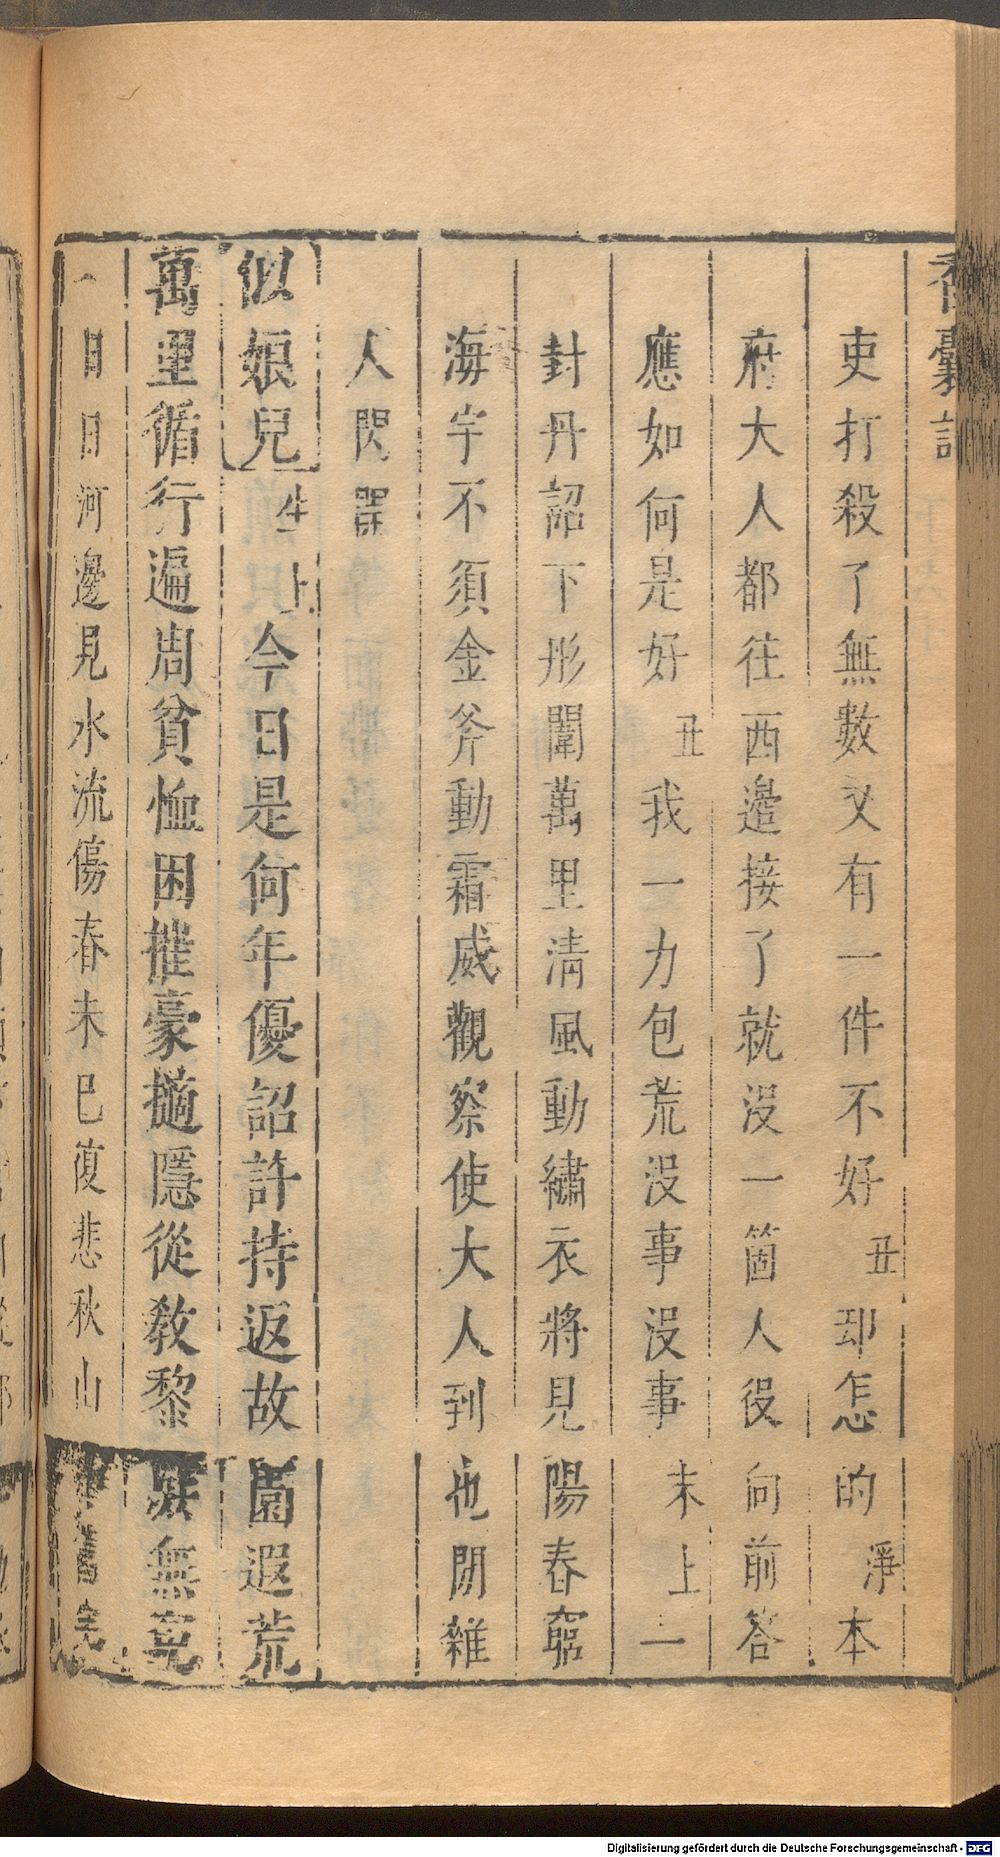 香囊記
吏打殺了無數又有一件不好丑却怎的淨本
府大人都往西邊接了就没一箇人役向前答
應如何是好丑我一力包荒没事没事末上一
封丹詔下彤闈萬里清風動繡衣將見陽春窮
海宇不須金斧動霜威觀察使大人到也閒雜
人閃開
似娘兒生上今日是何年優詔許持返故園遐荒
萬里循行遍周貧恤困摧豪擿隱從教黎無寃
日日河邊見水流傷春未已復悲秋山舊
Digitalisierung gefördert durch die Deutsche Forschungsgemeinschaft - DFG